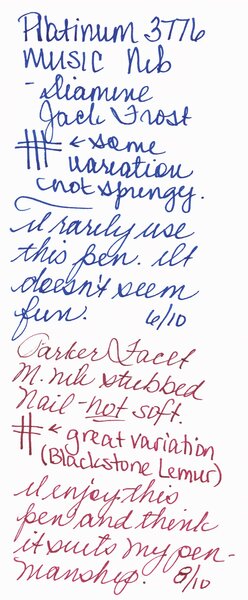 Platinum 3776
MUSIC Nib
- Diamine
Jack Frost
← some
variation
not springy.
I rarely use
this pen. It
doesn't seem
fun. 6/10
Parker Facet
M. nib stubbed
Nail - not soft.
← great variation
(Blackstone Lemur)
I enjoy this
pen and think
it suits my pen-
manship. 8/10